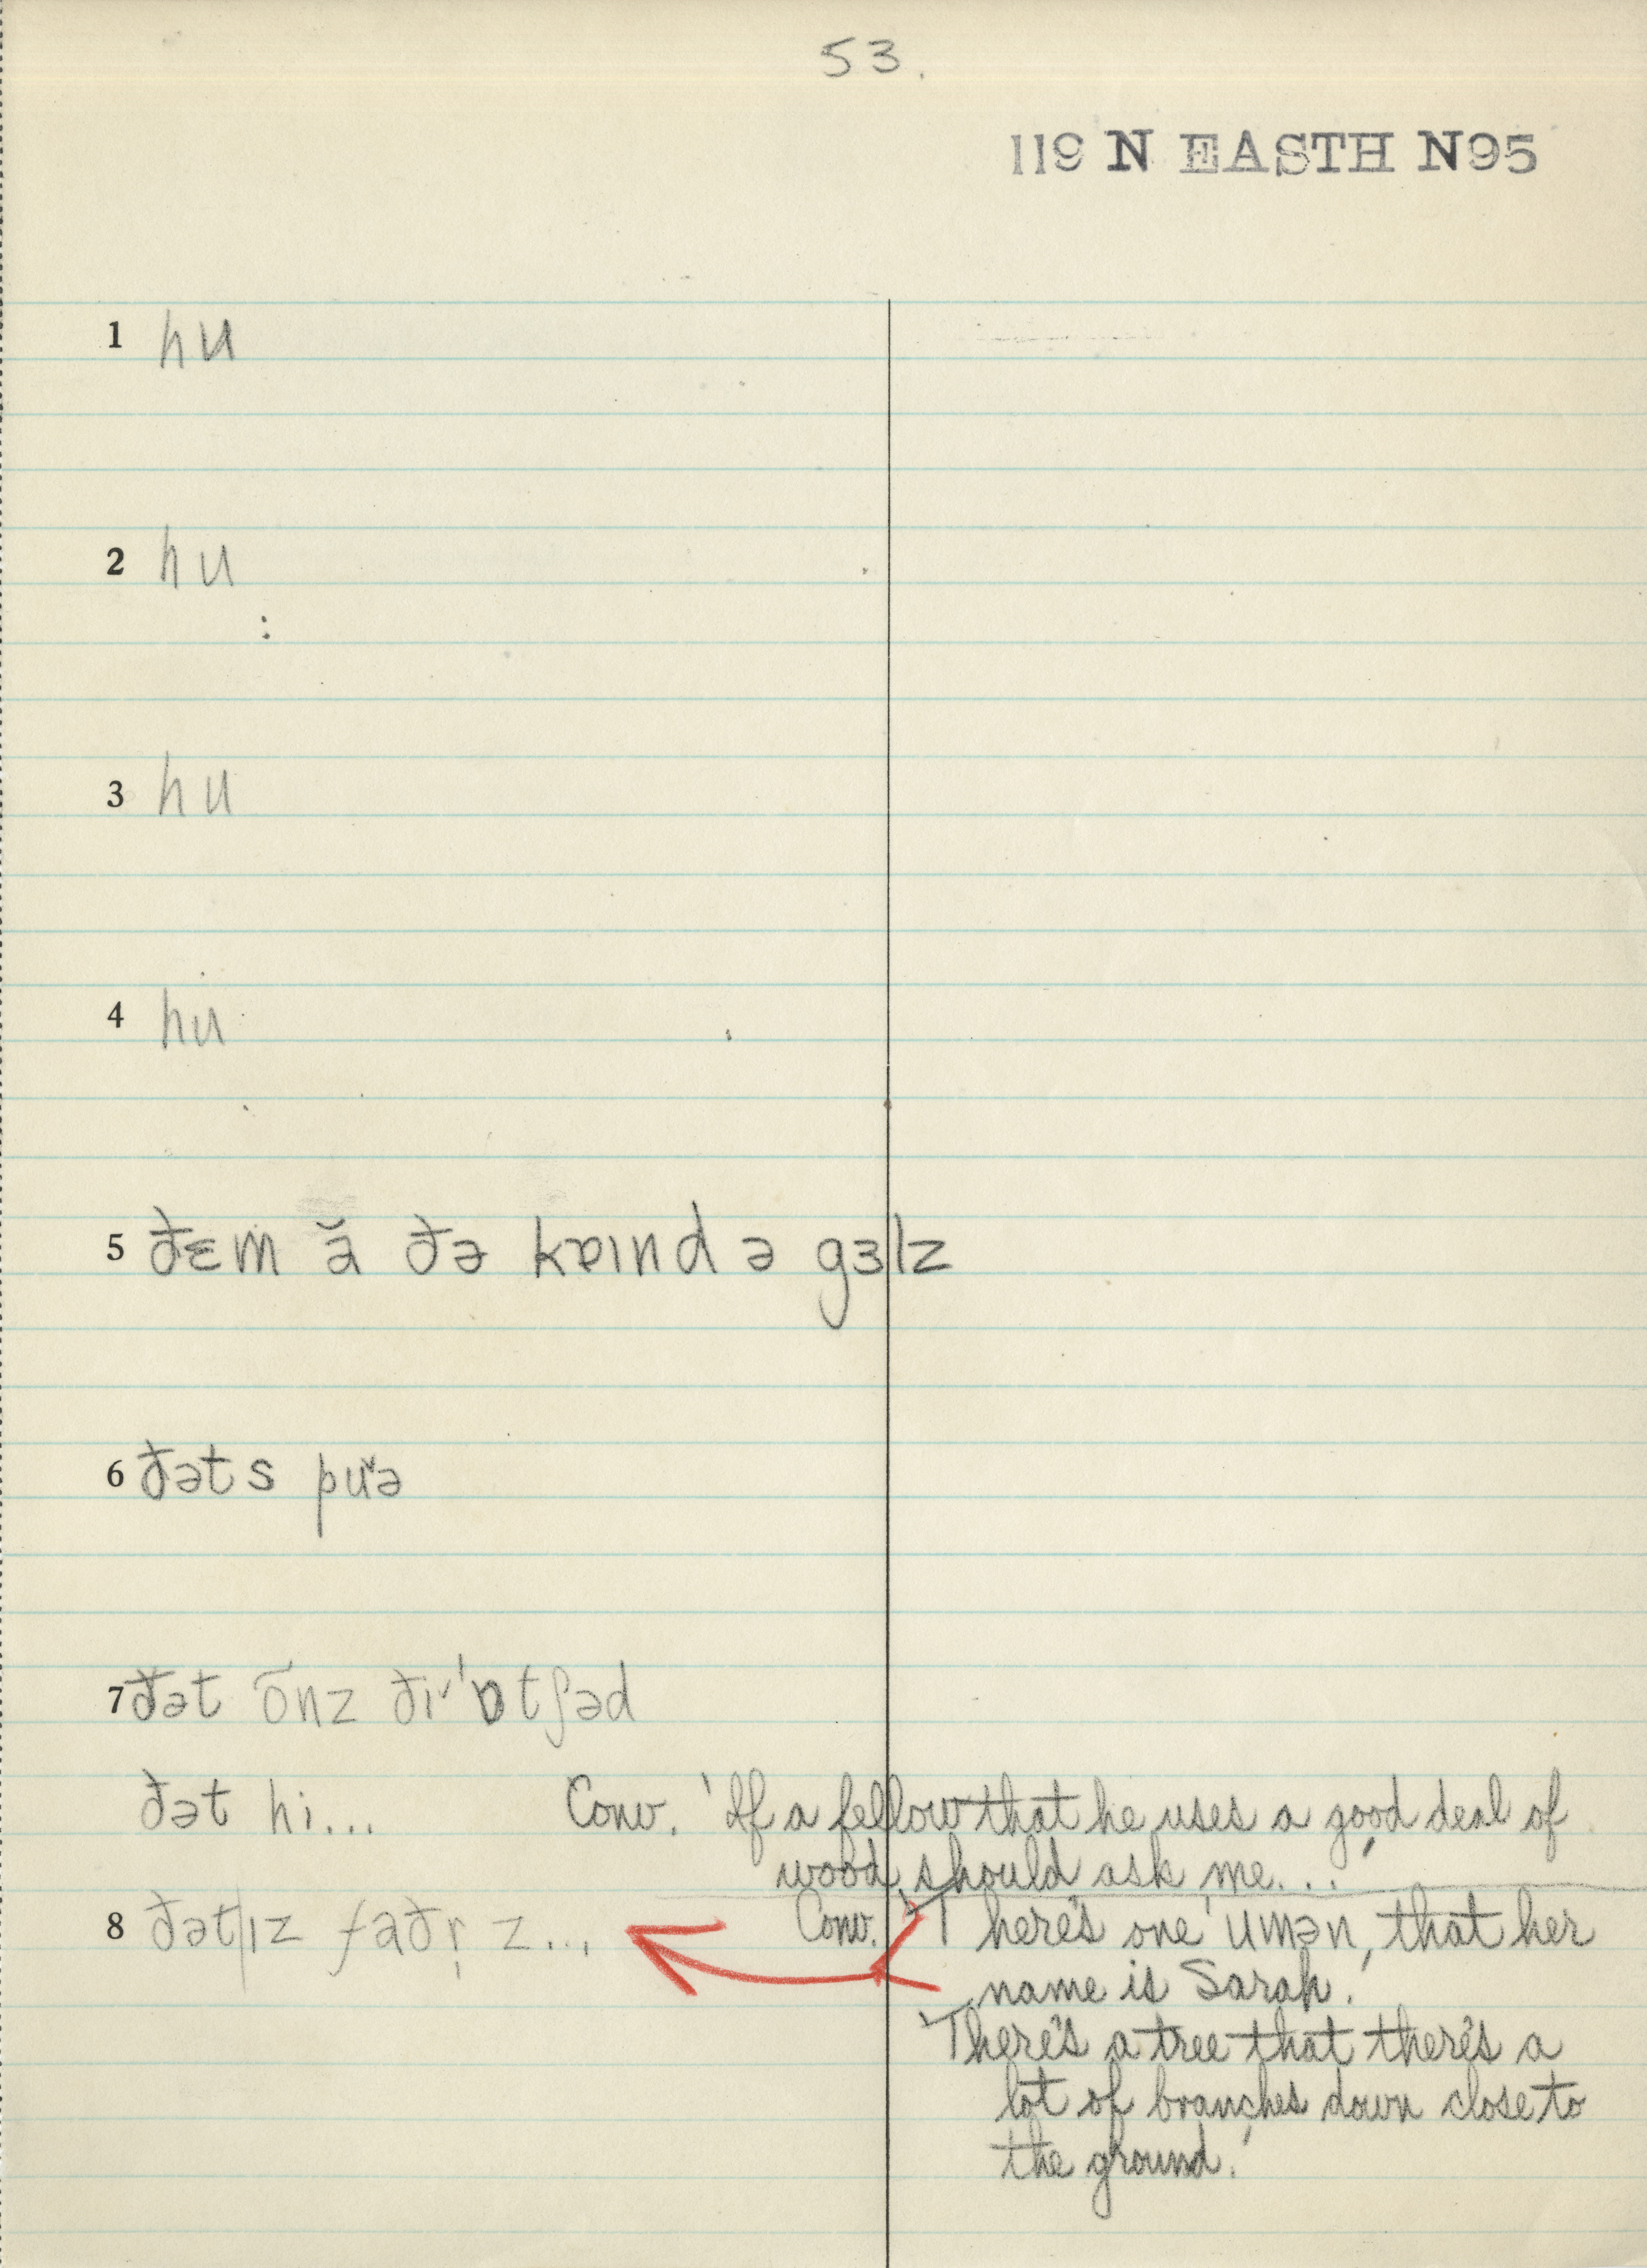 53.
119 N EASTH N95
1 hu
2 hu
3 hu
4 hu
5 ðɛm ă ðə kɒɪnd ə gɜlz
6 ðəts pŭə
7 ðət õnz ðɪˇ'ɒtʃəd
ðət hi... Conv. 'If a fellow that he uses a good deal of
wood, should ask me...'
8 ðət|ɪz faðr̩ z... Conv. 'There's one umən, that her
name is Sarah.'
'There's a tree that there's a
lot of branches down close to
the ground.'